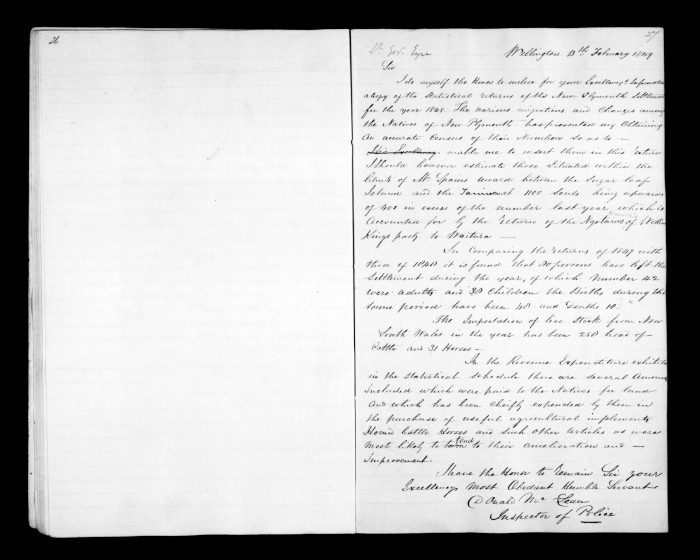 26
27
Lt. Gov. Eyre
Wellington 13th February 1849
Sir
I do myself the Honor to enclose for your Excellency's Information
a Copy of the Statistical returns of the New Plymouth Settlement
for the year 1848. The various migrations and Changes among
the Natives of New Plymouth has prevented my Obtaining
An accurate Census of their Numbers so as to —
His Excellency enable me to insert them in this Return
I Should however estimate those Situated within the
limits of Mr Spains award between the Sugar loaf
Island and the Taniwa at 1100 Souls being upwards
of 400 in excess of the number last year which is
Accounted for by the return of the Ngatiawas of William
Kings party to Waitara —
In Comparing the returns of 1847 with
those of 1848 it is found that 80 persons have left the
Settlement during the year, of which Number 42
were adults and 38 Children the Births during the
same period have been 48 and Deaths 10.
The Importation of live Stock from New
South Wales in the year has been 258 head of
Cattle and 31 Horses —
In the Revenue Expenditure exhibited
in the statistical schedule there are several Amounts
Included which were paid to the Natives for land
and which has been cheifly expended by them in
the purchase of useful agricultural implements
Horned Cattle Horses and Such other Articles as were
most likely to tend to their amelioration and —
Improvement.
I have the Honor to remain Sir your
Excellencys Most Obedient Humble Servant
Donald Mc Lean
Inspector of Police